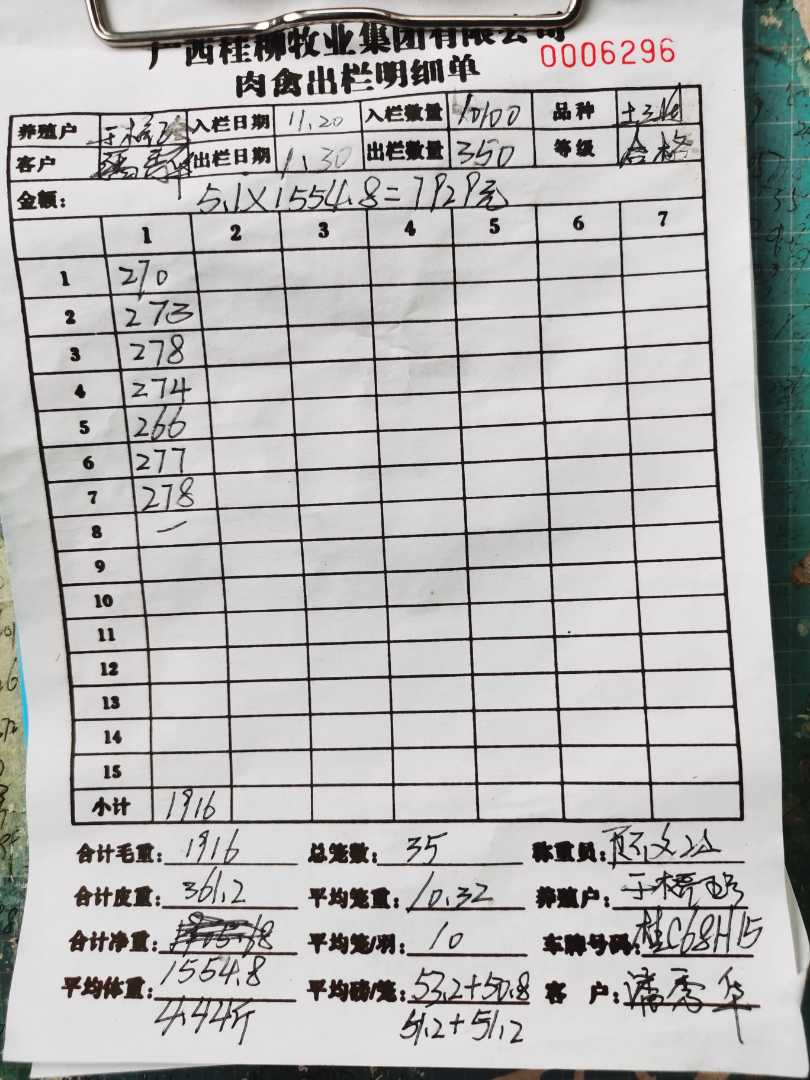 广西桂柳牧业集团有限公司
0006296
肉禽出栏明细单
养殖户 入栏日期 11.20 入栏数量 10100 品种
客户 潘秀华 出栏日期 1.30 出栏数量 350 等级 合格
金额: 5.1×1554.8=7929元
1 2 3 4 5 6 7
1 270
2 273
3 278
4 274
5 266
6 277
7 278
8 —
9
10
11
12
13
14
15
小计 1916
合计毛重: 1916 总笼数: 35 称重员:
合计皮重: 361.2 平均笼重: 10.32 养殖户:
合计净重: 平均笼/羽: 10 车牌号码: 桂C68H15
平均体重: 1554.8 平均磅/笼: 53.2+50.8 客户: 潘秀华
4.44斤 51.2+51.2